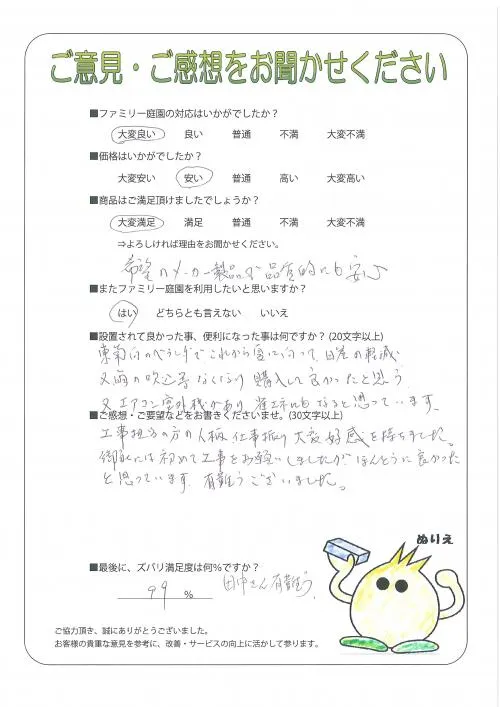 ご意見・ご感想をお聞かせください
■ファミリー庭園の対応はいかがでしたか？
大変良い 良い 普通 不満 大変不満
■価格はいかがでしたか？
大変安い 安い 普通 高い 大変高い
■商品はご満足頂けましたでしょうか？
大変満足 満足 普通 不満 大変不満
⇒よろしければ理由をお聞かせください。
希望のメーカー製品が品質的にも安心
■またファミリー庭園を利用したいと思いますか？
はい どちらとも言えない いいえ
■設置されて良かった事、便利になった事は何ですか？(20文字以上)
東南向のベランダでこれから夏に向って、日差の軽減
又雨の吹込等なくなり購入して良かったと思う
又エアコン室外機があり省エネにもなると思っています。
■ご感想・ご要望などをお書きくださいませ。(30文字以上)
工事担当の方の人柄、仕事振り大変好感を持ちました。
御社には初めて工事をお願いしましたが、ほんとうに良かった
と思っています。有難うございました。
ぬりえ
■最後に、ズバリ満足度は何%ですか？
99 % 田中さん有難う。
ご協力頂き、誠にありがとうございました。
お客様の貴重な意見を参考に、改善・サービスの向上に活かして参ります。